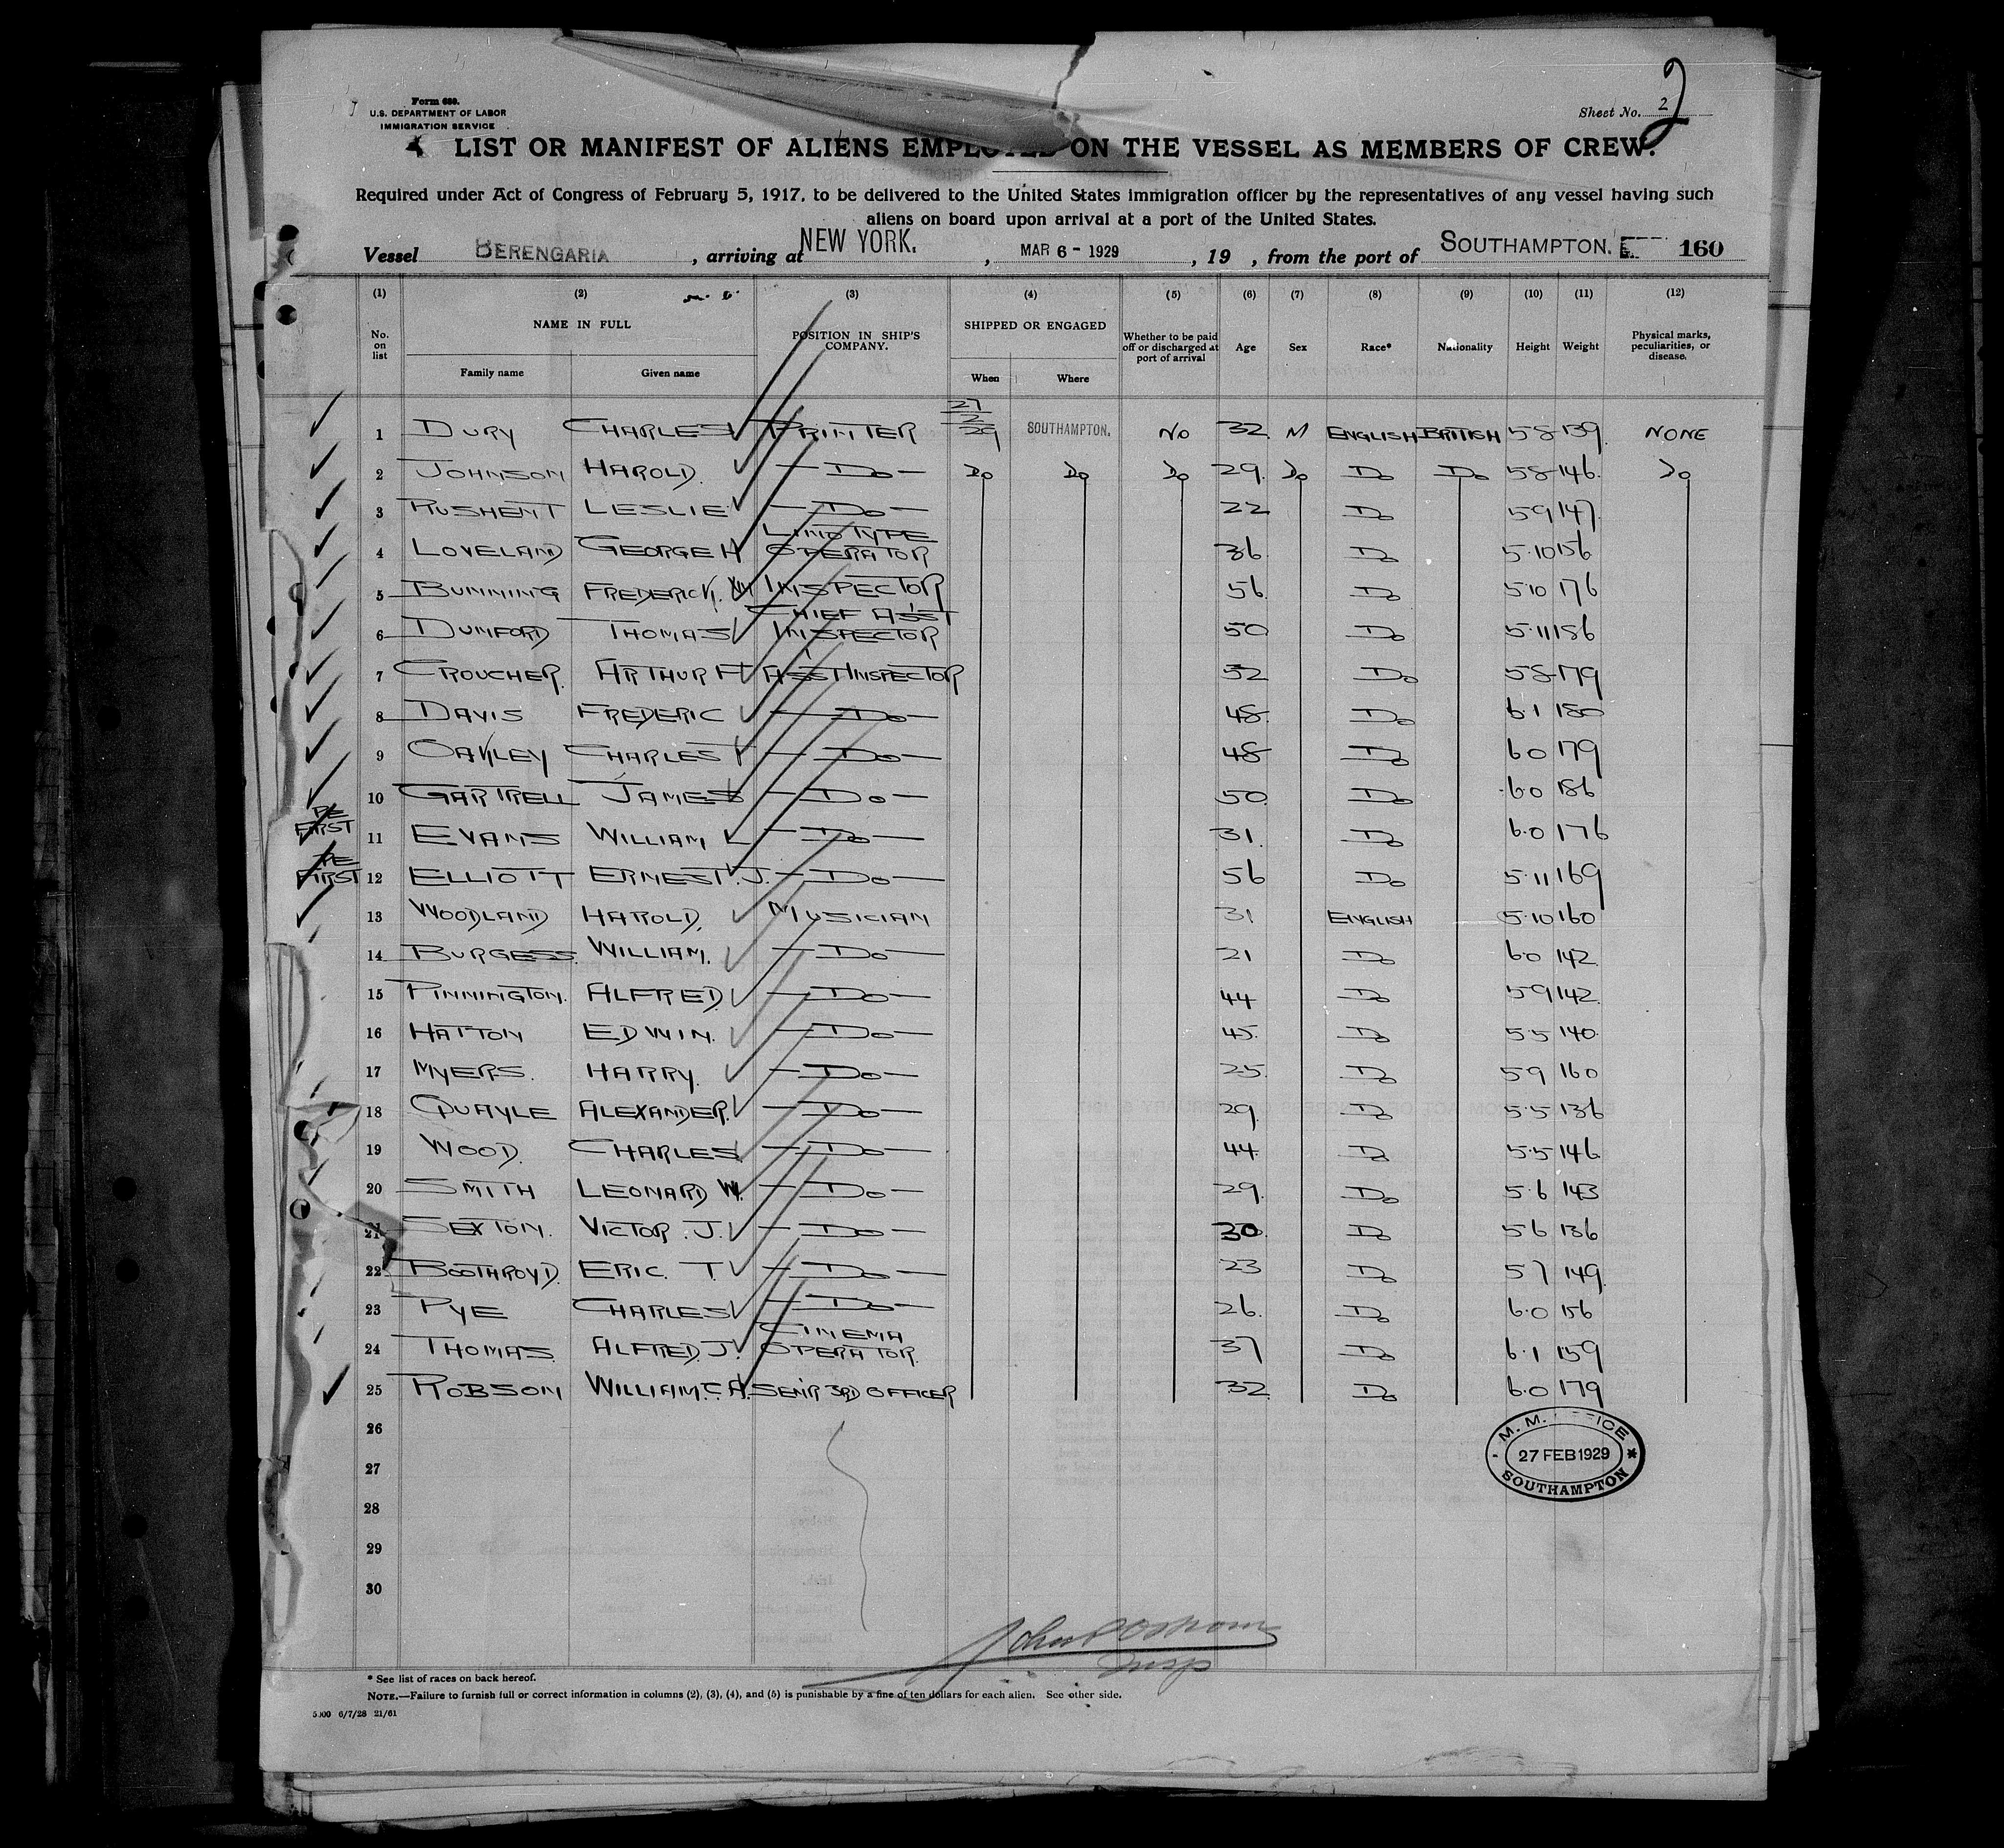 Form 680.
U.S. DEPARTMENT OF LABOR
IMMIGRATION SERVICE
Sheet No. 2
2
LIST OR MANIFEST OF ALIENS EMPLOYED ON THE VESSEL AS MEMBERS OF CREW.
Required under Act of Congress of February 5, 1917, to be delivered to the United States immigration officer by the representatives of any vessel having such
aliens on board upon arrival at a port of the United States.
Vessel BERENGARIA, arriving at NEW YORK., MAR 6 - 1929, 19 , from the port of SOUTHAMPTON. E 160
(1) (2) (3) (4) (5) (6) (7) (8) (9) (10) (11) (12)
No. on list NAME IN FULL Family name Given name POSITION IN SHIP'S COMPANY. SHIPPED OR ENGAGED When Where Whether to be paid off or discharged at port of arrival Age Sex Race* Nationality Height Weight Physical marks, peculiarities, or disease.
1 DURY CHARLES PRINTER 27/2/29 SOUTHAMPTON. NO 32 M ENGLISH BRITISH 5 8 139 NONE
2 JOHNSON HAROLD. — DO — DO DO DO 29. DO DO DO 5 8 146. DO
3 RUSHENT LESLIE — DO — 22 DO 5 9 147.
4 LOVELAND GEORGE H LINOTYPE OPERATOR 36 DO 5.10 156
5 BUNNING FREDERICK. WM INSPECTOR 56 DO 5 10 176
6 DUMFORD THOMAS CHIEF ASS'T INSPECTOR 50 DO 5.11 186
7 CROUCHER. ARTHUR H ASS'T INSPECTOR 52 DO 5 8 179
8 DAVIS FREDERIC — DO — 48. DO 6.1 180
9 OAKLEY CHARLES — DO — 48 DO 6 0 179
10 GARTRELL JAMES — DO — 50. DO 6.0 186
RE FIRST 11 EVANS WILLIAM L — DO — 31. DO 6.0 176
RE FIRST 12 ELLIOTT ERNEST. J. — DO — 56 DO 5.11 169
13 WOODLAND HAROLD. MUSICIAN 31 ENGLISH 5.10 160
14 BURGESS. WILLIAM. — DO — 21 DO 6.0 142
15 PINNINGTON. ALFRED. — DO — 44 DO 5 9 142.
16 HATTON EDWIN. — DO — 45. DO 5.5 140.
17 MYERS. HARRY. — DO — 25. DO 5 9 160
18 QUAYLE ALEXANDER. — DO — 29. DO 5.5 136
19 WOOD. CHARLES — DO — 44. DO 5.5 146
20 SMITH LEONARD W. — DO — 29. DO 5.6 143
21 SEXTON. VICTOR. J. — DO — 30. DO 5 6 136
22 BOOTHROYD. ERIC. T. — DO — 23 DO 5 7 149.
23 PYE CHARLES — DO — 26. DO 6.0 156
24 THOMAS. ALFRED. J. CINEMA OPERATOR. 37 DO 6.1 159
25 ROBSON WILLIAM. C. A. SEN'R 3RD OFFICER 32. DO 6.0 179
26
27
28
29
30
M. M. OFFICE
27 FEB 1929
SOUTHAMPTON
Insp
* See list of races on back hereof.
NOTE.—Failure to furnish full or correct information in columns (2), (3), (4), and (5) is punishable by a fine of ten dollars for each alien. See other side.
5000 6/7/28 21/61